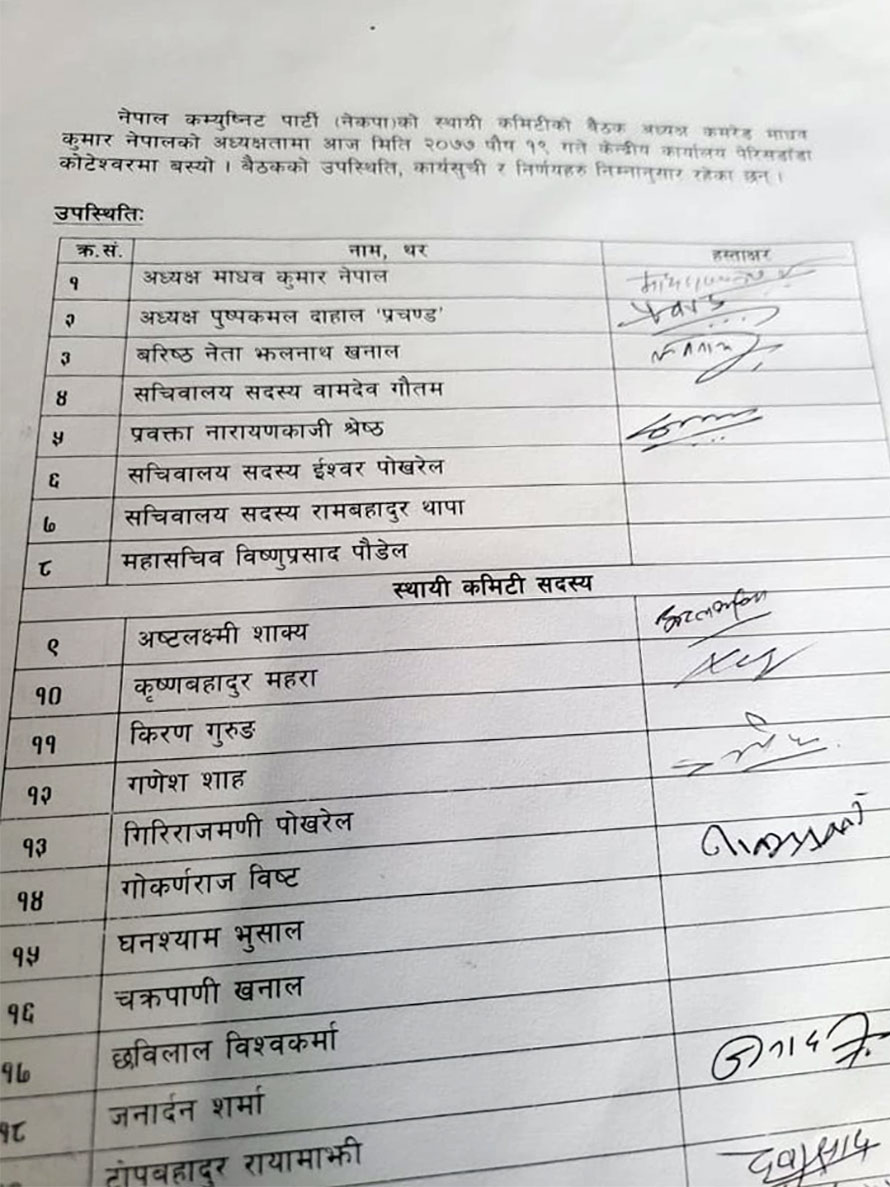 नेपाल कम्युष्निट पार्टी (नेकपा)को स्थायी कमिटीको बैठक अध्यक्ष कमरेड माधव
कुमार नेपालको अध्यक्षतामा आज मिति २०७७ पौष १९ गते केन्द्रीय कार्यालय पेरिसडाँडा
कोटेश्वरमा बस्यो । बैठकको उपस्थिति, कार्यसुची र निर्णयहरु निम्नानुसार रहेका छन् ।
उपस्थितिः
क्र.सं. नाम, थर हस्ताक्षर
१ अध्यक्ष माधव कुमार नेपाल
२ अध्यक्ष पुष्पकमल दाहाल 'प्रचण्ड'
३ बरिष्ठ नेता झलनाथ खनाल
४ सचिवालय सदस्य वामदेव गौतम
५ प्रवक्ता नारायणकाजी श्रेष्ठ
६ सचिवालय सदस्य ईश्वर पोखरेल
७ सचिवालय सदस्य रामबहादुर थापा
८ महासचिव विष्णुप्रसाद पौडेल
स्थायी कमिटी सदस्य
९ अष्टलक्ष्मी शाक्य
१० कृष्णबहादुर महरा
११ किरण गुरुङ
१२ गणेश शाह
१३ गिरिराजमणी पोखरेल
१४ गोकर्णराज विष्ट
१५ घनश्याम भुसाल
१६ चक्रपाणी खनाल
१७ छविलाल विश्वकर्मा
१८ जनार्दन शर्मा
टोपबहादुर रायामाझी